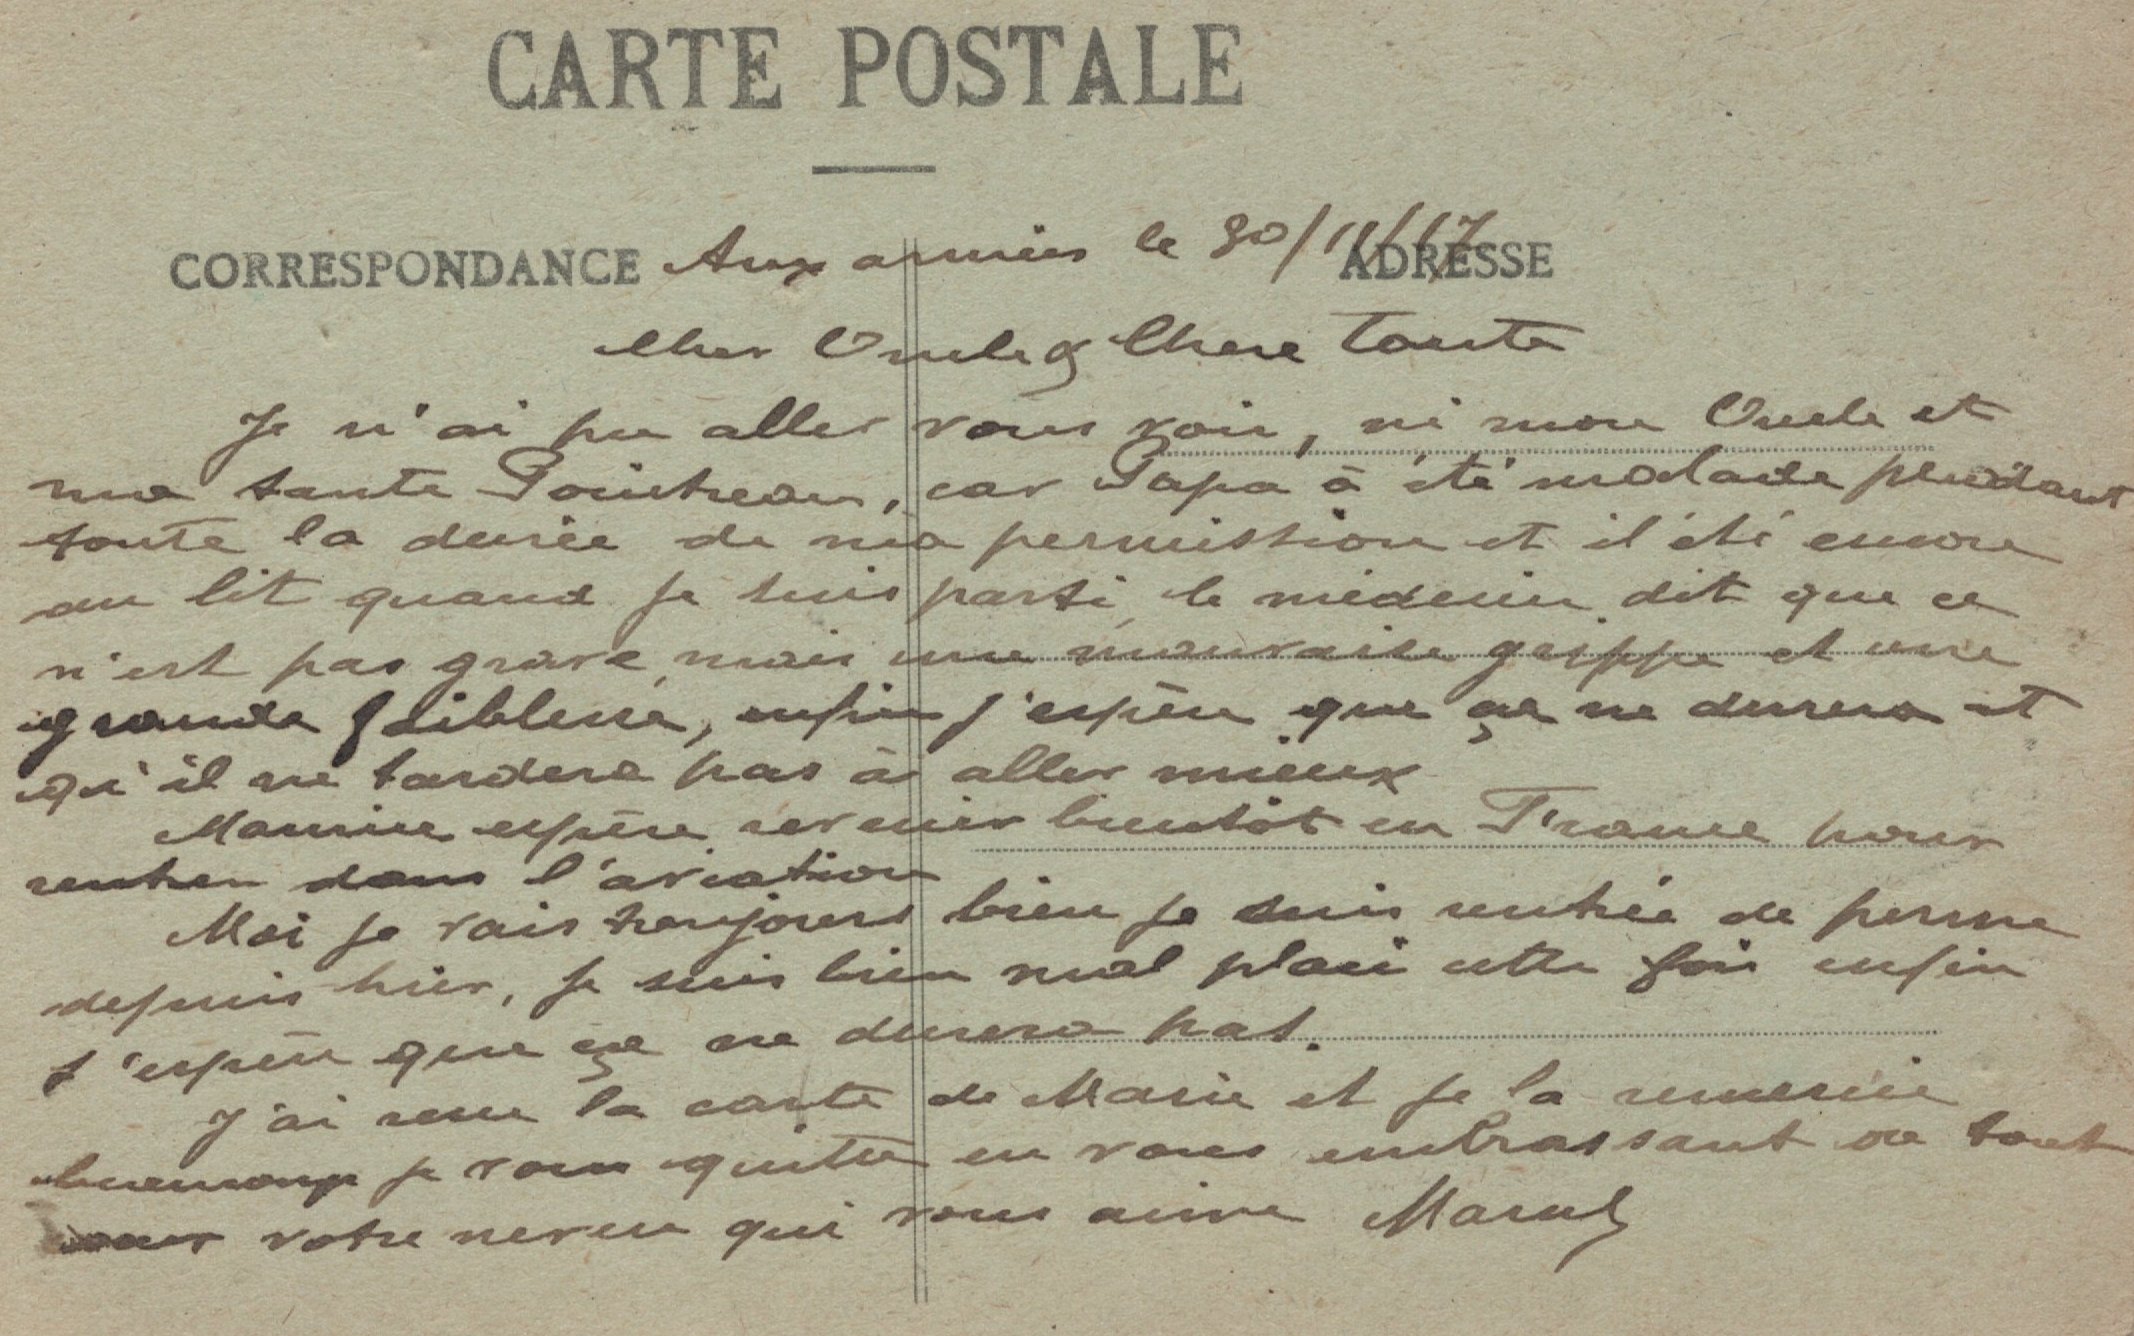 CARTE POSTALE
CORRESPONDANCE Aux armées le 30/11/17 ADRESSE
Cher Oncle & Chere Tante
Je n'ai pu aller vous voir, ni mon Oncle et
ma tante, car Papa à été malade pendant
toute la durée de ma permission et il été encore
au lit quand je suis parti, le médecin dit que ce
n'est pas grave, mais une mauvaise grippe et une
grande faiblesse, enfin j'espère que ça ne durera et
qu'il ne tardera pas à aller mieux
Maurice espère revenir bientôt en France pour
rentrer dans l'aviation
Moi je vais toujours bien je suis rentrée de perme
depuis hier, je suis bien mal placé cette fois enfin
j'espère que ça ne durera pas.
J'ai reçu la carte de Marie et je la remercie
beaucoup je vous quitte en vous embrassant de tout
cœur votre neveu qui vous aime Marcel